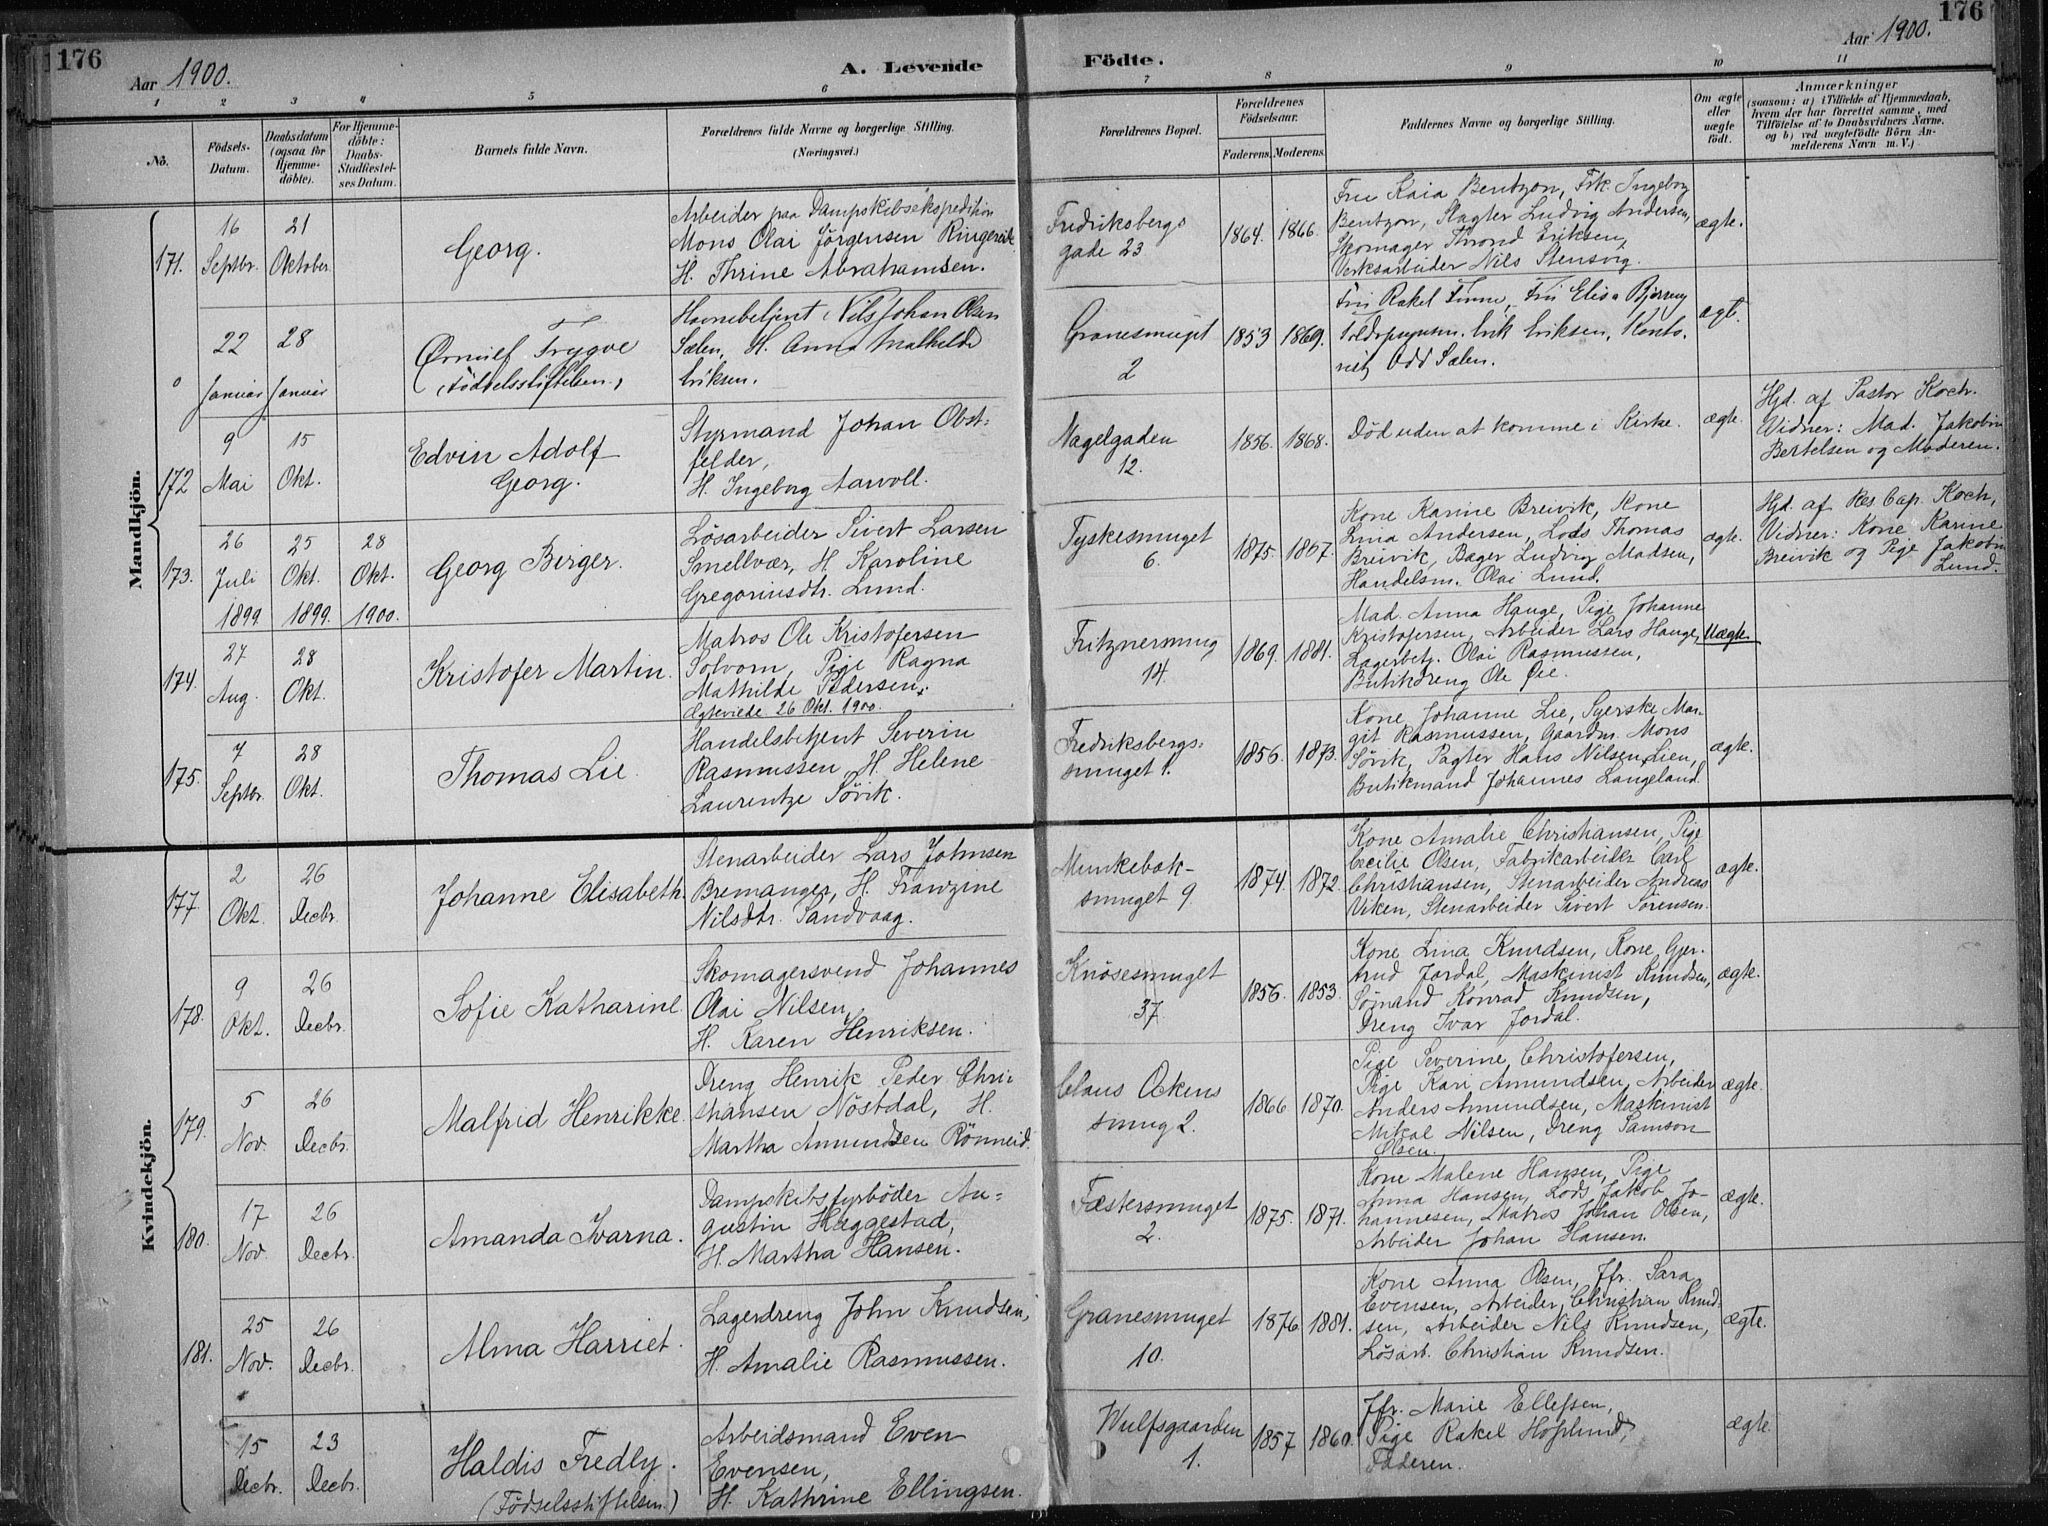 176
Aar 1900.
A. Levende Födte.
Aar 1900.
176
1 2 3 4 5 6 7 8 9 10 11
No.
Födsels-Datum.
Daabsdatum (ogsaa for Hjemme-döbte).
For Hjemme-döbte: Daabs-Stadfæstel-ses Datum.
Barnets fulde Navn.
Forældrenes fulde Navne og borgerlige Stilling.
(Næringsvei.)
Forældrenes Bopæl.
Forældrenes Födselsaar.
Faderens. Moderens.
Faddernes Navne og borgerlige Stilling.
Om ægte eller uægte födt.
Anmærkninger
(saasom: a) i Tilfælde af Hjemmedaab,
hvem der har forrettet samme, med
Tilföielse af to Daabsvidners Navne,
og b) ved uægtefödte Börn An-
melderens Navn m. V.)
Mandkjön.
171.
16 Septbr.
21 Oktober.
Georg.
Arbeider paa Dampskibsekspedition
Mons Olai Jörgensen Ringereide
H. Thrine Abrahamsen.
Fredriksbergs
gade 23
1864. 1866.
Fru Kaia Bentzon, Frk. Ingeborg
Bentzon, Slagter Ludvig Andersen,
Skomager Thrond Eriksen,
Verksarbeider Nils Stensvig.
ægte.
0
22 Januar
28 Januar
Ørnulf Trygve
(Födselsstiftelsen)
Havnebetjent Nils Johan Olsen
Sælen, H. Anna Mathilde
Eriksen.
Granesmuget
2
1853 1869.
Fru Rakel Finne, Fru Elisa Bjørnøy
Erik Eriksen, Konto-
rist Odd Sælen.
ægt.
172
9 Mai
15 Okt.
Edvin Adolf
Georg.
Styrmand Johan Obst-
felder,
H. Ingeborg Aarvoll.
Nagelgaden
12.
1856. 1868.
Död uden at komme i Kirke.
ægte.
Hjd. af Pastor Koch.
Vidner: Mad. Jakobin
Bertelsen og Moderen.
173.
26 Juli 1899
25 Okt. 1899.
28 Okt. 1900.
Georg Birger.
Lösarbeider Sivert Larsen
Smellvær, H. Karoline
Gregoriusdtr. Lund.
Tyskesmuget
6.
1875. 1867.
Kone Karine Breivik, Kone
Lina Andersen, Lods Thomas
Breivik, Bager Ludvig Madsen,
Handelsm. Olai Lund.
ægte.
Hjd. af Res. Cap. Koch,
Vidner: Kone Karine
Breivik og Pige Jakobin
Lund.
174.
27 Aug.
28 Okt.
Kristofer Martin.
Matros Ole Kristofersen
Solvorn, Pige Ragna
Mathilde Pedersen,
Ægteviede 26 Okt. 1900.
Fritznersmug
14.
1869. 1881.
Mad. Anna Hauge, Pige Johanne
Kristofersen, Arbeider Lars Hauge,
Lagerbetj. Olai Rasmussen,
Butikdreng Ole Øie.
Uægte.
175.
7 Septbr.
28 Okt.
Thomas Lie.
Handelsbetjent Severin
Rasmussen H. Helene
Laurentze Sövik.
Fredriksbergs-
smuget 1.
1856. 1873.
Kone Johanne Lie, Syerske Mar-
git Rasmussen, Gaardm. Mons
Sövik, Pagter Hans Nilsen Lien,
Butikmand Johannes Langeland.
ægte.
Kvindekjön.
177.
2 Okt.
26 Decbr.
Johanne Elisabeth.
Stenarbeider Lars Johnsen
Bremanger, H. Franzine
Nilsdtr. Sandvaag.
Munkebæk-
smuget 9.
1874. 1872.
Kone Amalie Christiansen, Pige
Cecilie Olsen, Fabrikarbeider Carl
Christiansen, Stenarbeider Andreas
Viken, Stenarbeider Sivert Sörensen.
ægte.
178.
9 Okt.
26 Decbr.
Sofie Katharine.
Skomagersvend Johannes
Olai Nilsen,
H. Karen Henriksen.
Knösesmuget
37.
1856. 1853.
Kone Lina Knudsen, Kone Gjer-
trud Jordal, Maskinist Knudsen,
Sömand Konrad Knudsen,
Dreng Ivar Jordal.
ægte.
179.
5 Nov.
26 Decbr.
Malfrid Henrikke.
Dreng Henrik Peder Chri-
stiansen Nöstdal, H.
Martha Amundsen Rönneid.
Claus Ockens
smug 2.
1866 1870.
Pige Severine Christofersen,
Pige Kari Amundsen, Arbeider
Anders Amundsen, Maskinist
Mikal Nilsen, Dreng Samson
Olsen.
ægte.
180.
17 Nov.
26 Decbr.
Amanda Ivarna.
Dampskibsfyrböder Au-
gustin Hæggestad,
H. Martha Hansen.
Fæstersmuget
2.
1875. 1871.
Kone Malene Hansen, Pige
Anna Hansen, Lods Jakob Jo-
hannesen, Matros Johan Olsen,
Arbeider Johan Hansen.
ægte.
181.
25 Nov.
26 Decbr.
Alma Harriet.
Lagerdreng John Knudsen,
H. Amalie Rasmussen.
Granesmuget
10.
1876 1881.
Kone Anna Olsen, Jfr. Sara
Evensen, Arbeider Christian Knud-
sen, Arbeider Nils Knudsen,
Løsarb. Christian Knudsen.
ægte.
15 Decbr.
23 Decbr.
Haldis Fredly.
(Födselsstiftelsen.)
Arbeidsmand Even
Evensen,
H. Kathrine Ellingsen.
Wulfsgaarden
1.
1857 1860.
Jfr. Marie Ellefsen,
Pige Rakel Hoplund,
Faderen.
ægte.